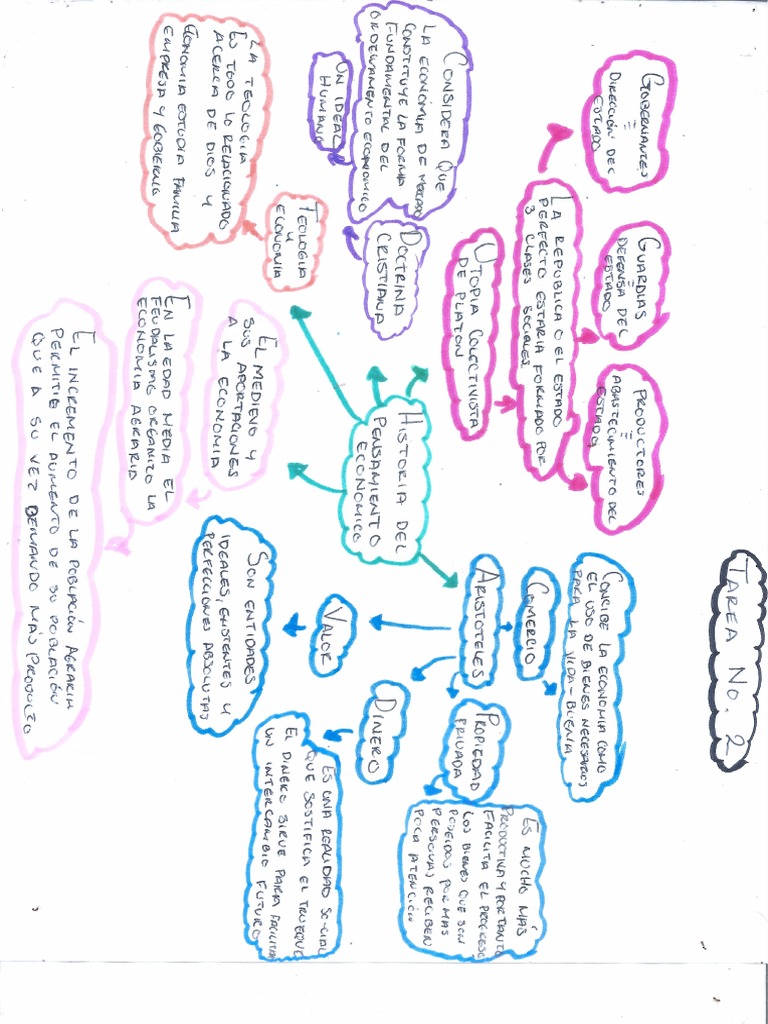 TAREA No. 2
GOBERNANTES
=
DIRECCIÓN DEL
ESTADO
GUARDIAS
=
DEFENSA DEL
ESTADO
PRODUCTORES
=
ABASTECIMIENTO DEL
ESTADO
LA REPUBLICA O EL ESTADO
PERFECTO ESTARIA FORMADO POR
3 CLASES SOCIALES
UTOPIA COLECTIVISTA
DE PLATON
CONSIDERA QUE
LA ECONOMIA DE MERCADO
CONSTITUYE LA FORMA
FUNDAMENTAL DEL
ORDENAMIENTO ECONOMICO
DOCTRINA
CRISTIANA
UN IDEAL
HUMANO
TEOLOGIA
Y
ECONOMIA
LA TEOLOGIA
ES TODO LO RELACIONADO
ACERCA DE DIOS Y
ECONOMIA ESTUDIA FAMILIA
EMPRESA Y GOBIERNO
HISTORIA DEL
PENSAMIENTO
ECONOMICO
EL MEDIEVO Y
SUS APORTACIONES
A LA ECONOMIA
EN LA EDAD MEDIA EL
FEUDALISMO ORGANIZO LA
ECONOMIA AGRARIA
EL INCREMENTO DE LA POBLACIÓN AGRARIA
PERMITIO EL AUMENTO DE SU POBLACIÓN
QUE A SU VEZ DEMANDO MÁS PRODUCTO
ARISTOTELES
COMERCIO
CONCIBE LA ECONOMIA COMO
EL USO DE BIENES NECESARIOS
PARA LA VIDA-BUENA
PROPIEDAD
PRIVADA
ES MUCHO MÁS
PRODUCTIVA Y PORTANTO
FACILITA EL PROGRESO
LOS BIENES QUE SON
POSEIDOS POR MAS
PERSONAS RECIBEN
POCA ATENCIÓN
DINERO
ES UNA REALIDAD SO-CIAL
QUE SOSTIFICA EL TRUEQUE
EL DINERO SIRVE PARA FACILITAR
UN INTERCAMBIO FUTURO
VALOR
SON ENTIDADES
IDEALES, EXISTENTES Y
PERFECCIONES ABSOLUTAS